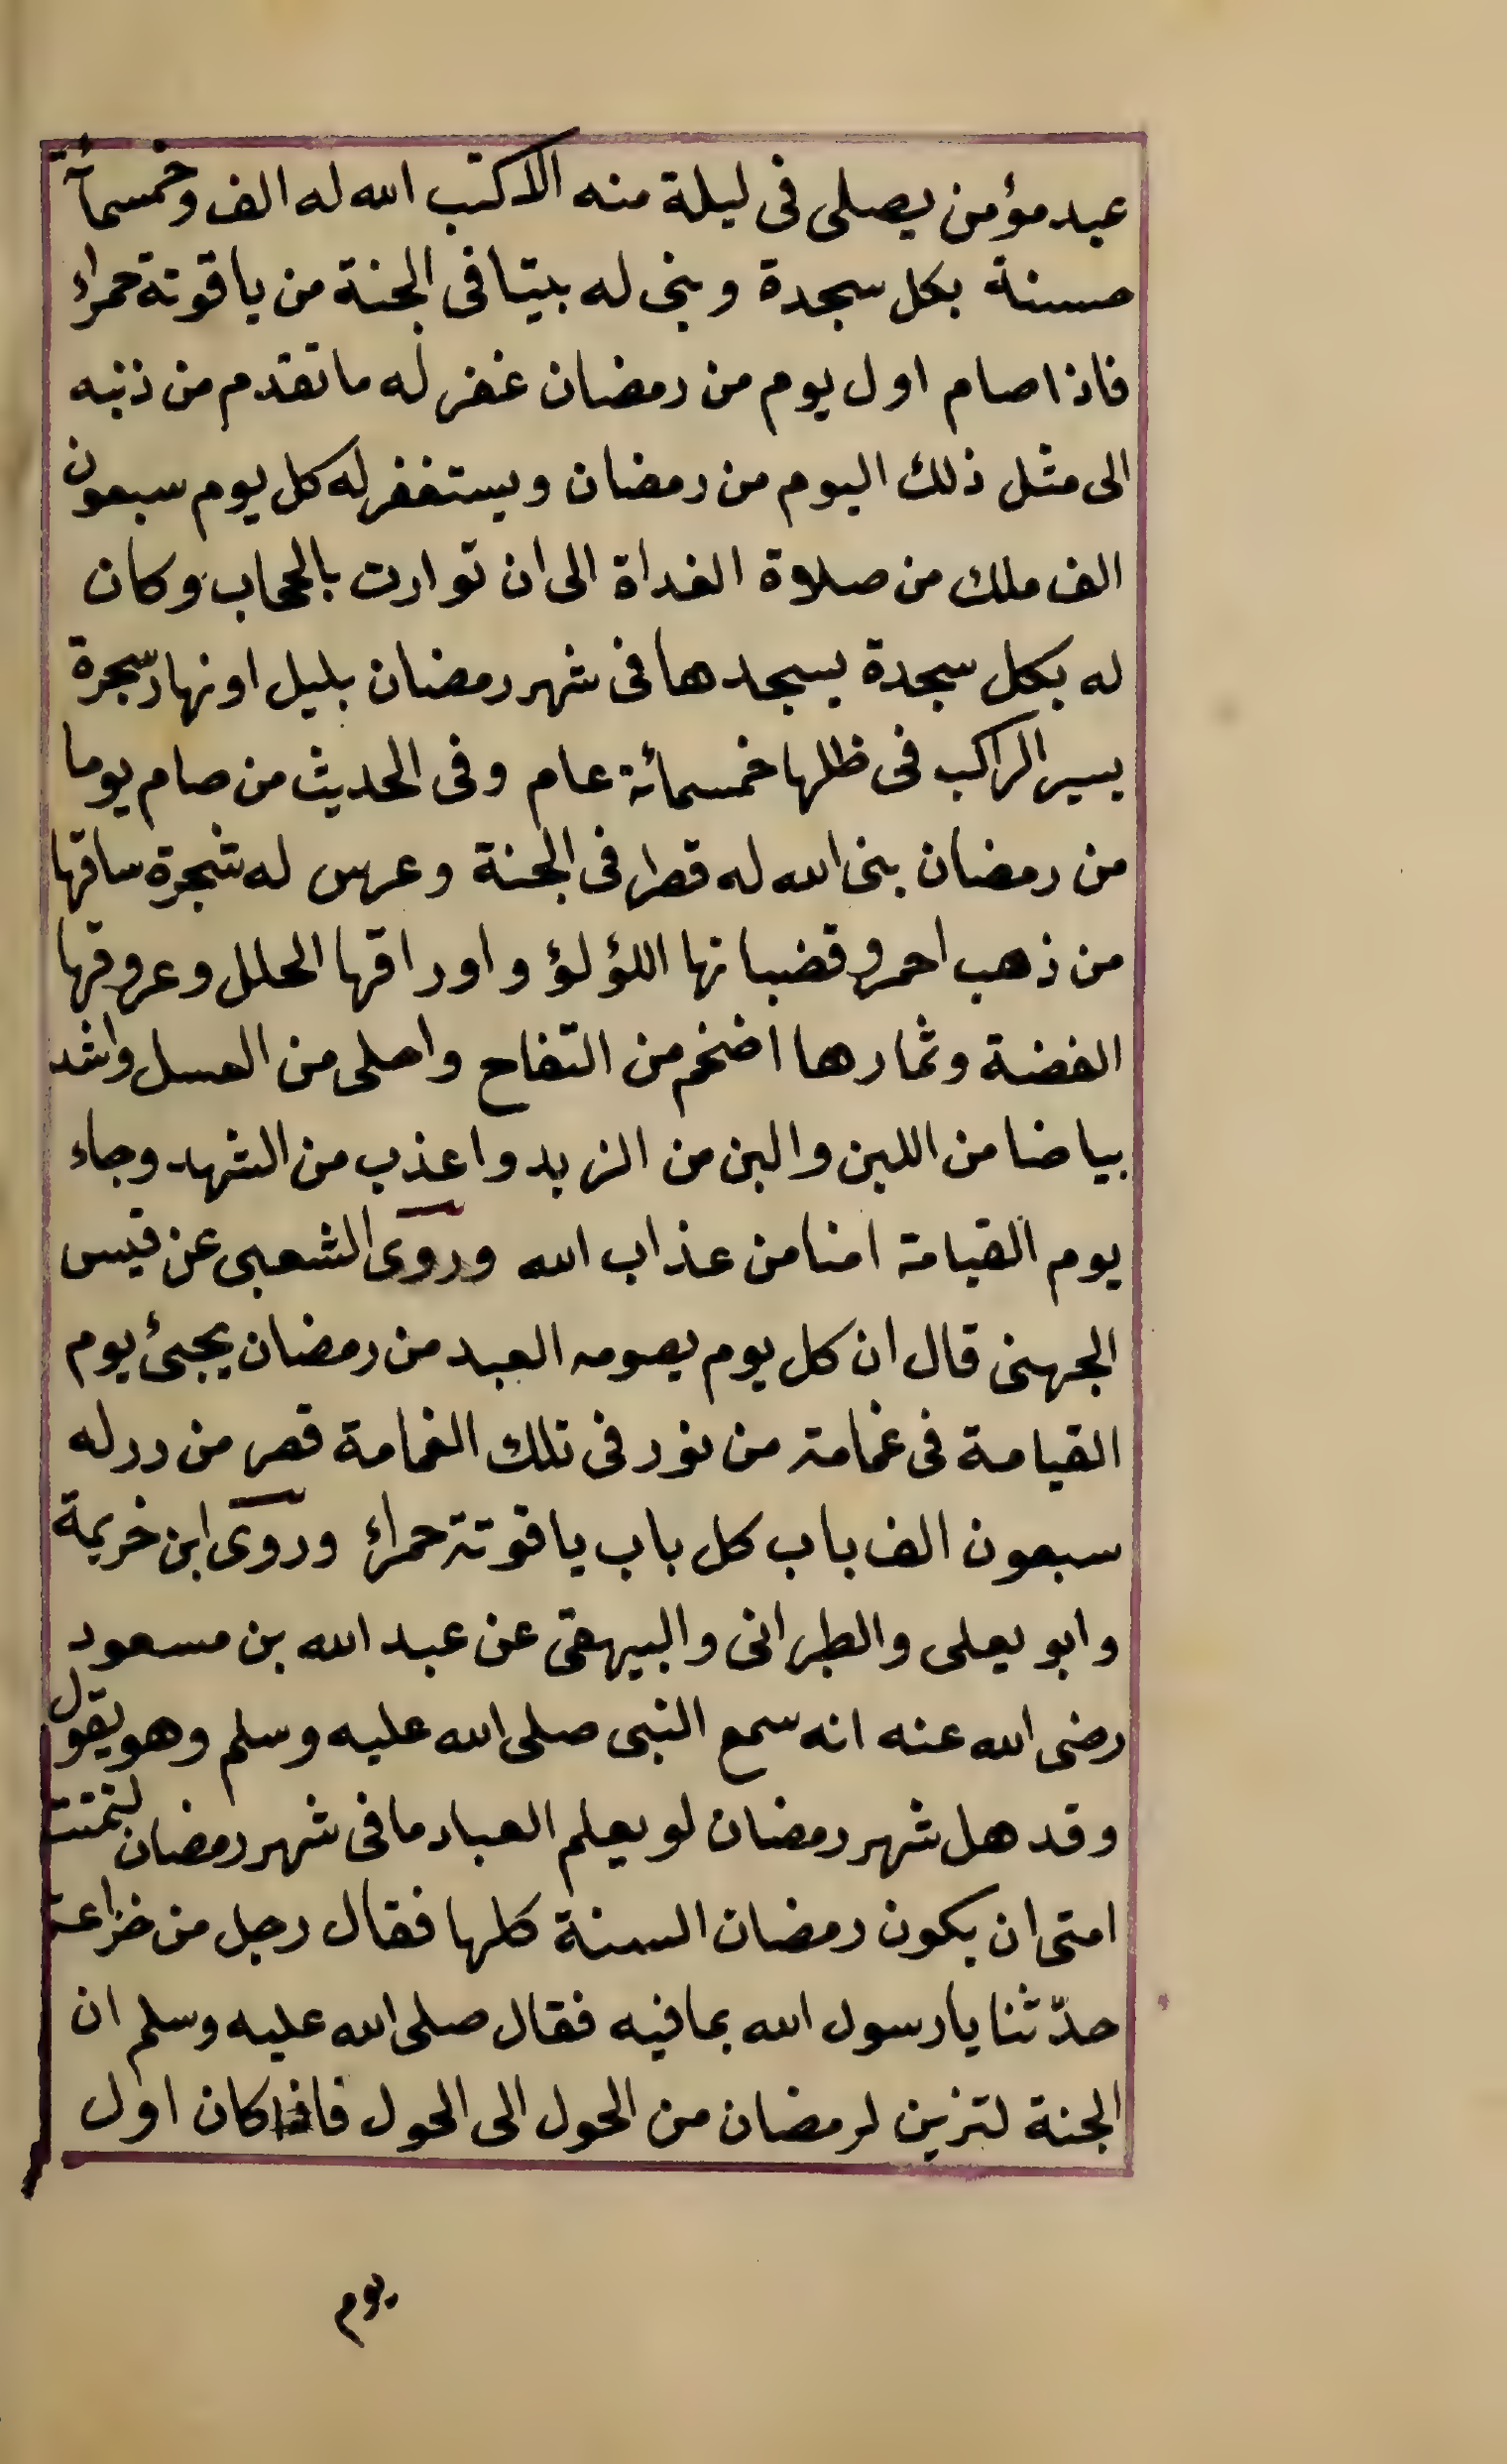 عبد مؤمن يصلى فى ليلة منه الا كتب الله له الف وخمسمائة
حسنة بكل سجدة وبنى له بيتا فى الجنة من ياقوتة حمراء
فاذا صام اول يوم من رمضان غفر له ما تقدم من ذنبه
الى مثل ذلك اليوم من رمضان ويستغفر له كل يوم سبعون
الف ملك من صلاة الغداة الى ان توارت بالحجاب وكان
له بكل سجدة يسجدها فى شهر رمضان بليل او نهار سجرة
يسير الراكب فى ظلها خمسمائة عام وفى الحديث من صام يوما
من رمضان بنى الله له قصرا فى الجنة وعرس له شجرة ساقها
من ذهب احمر وقضبانها اللؤلؤ واوراقها الحلل وعروقها
الفضة وثمارها اضخم من التفاح واحلى من العسل واشد
بياضا من اللبن والبن من الزبد واعذب من الشهد وجاء
يوم القيامة امنا من عذاب الله وروى الشعبى عن قيس
الجهنى قال ان كل يوم يصومه العبد من رمضان يجىئ يوم
القيامة فى غمامة من نور فى تلك الغمامة قصر من درر له
سبعون الف باب كل باب ياقوتة حمراء وروى ابن خريمة
وابو يعلى والطبرانى والبيهقى عن عبد الله بن مسعود
رضى الله عنه انه سمع النبى صلى الله عليه وسلم وهو يقول
وقد هل شهر رمضان لو يعلم العباد ما فى شهر رمضان لتمنت
امتى ان يكون رمضان السنة كلها فقال رجل من خزاعة
حدّثنا يا رسول الله بما فيه فقال صلى الله عليه وسلم ان
الجنة لتزين لرمضان من الحول الى الحول فاذا كان اول
يوم